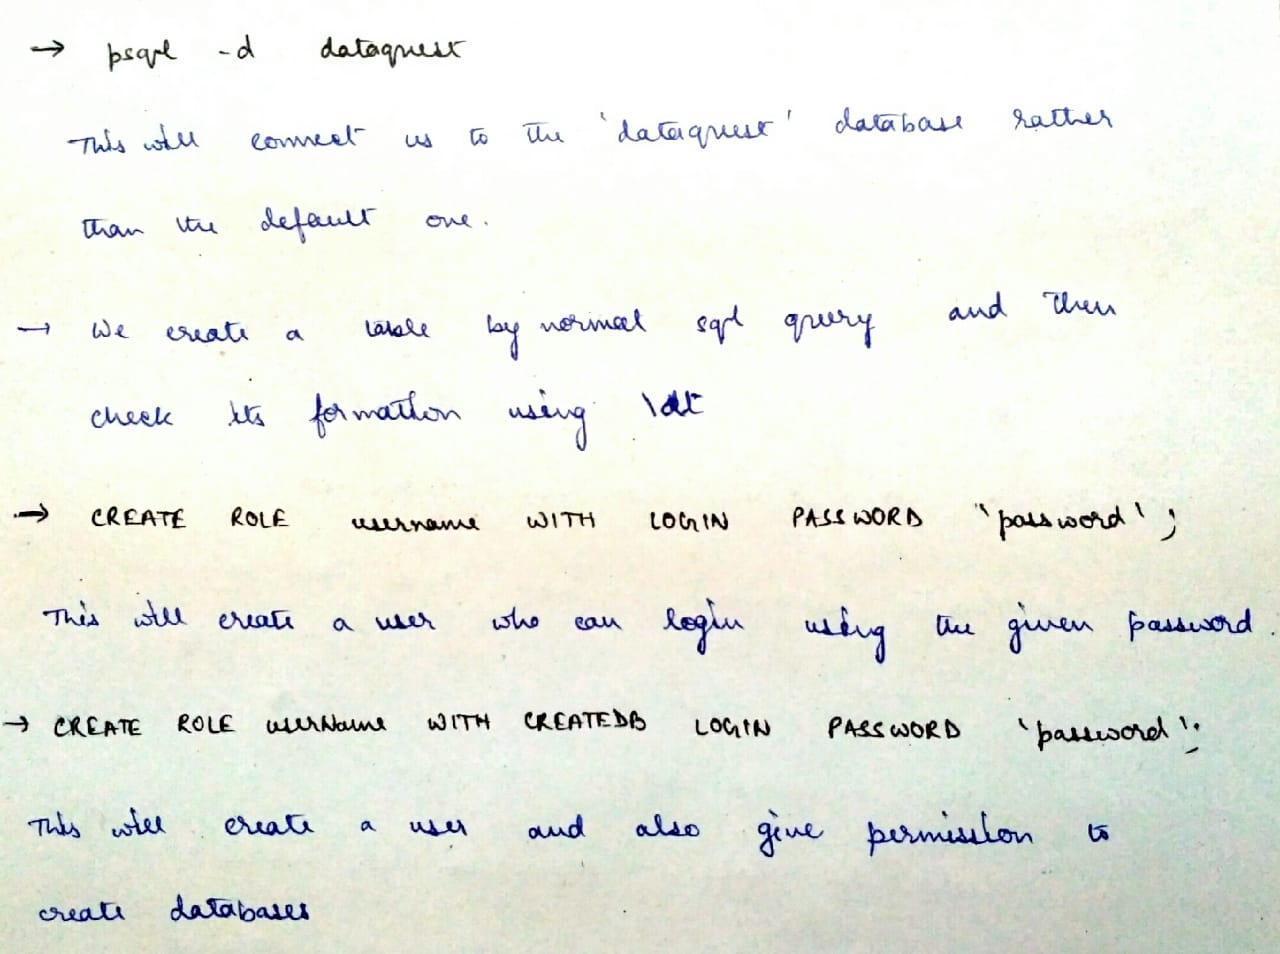 → psql -d dataquest
This will connect us to the 'dataquest' database rather
than the default one.
→ We create a table by normal sql query and then
check its formation using \dt
→ CREATE ROLE username WITH LOGIN PASSWORD 'password';
This will create a user who can login using the given password.
→ CREATE ROLE userName WITH CREATEDB LOGIN PASSWORD 'password';
This will create a user and also give permission to
create databases